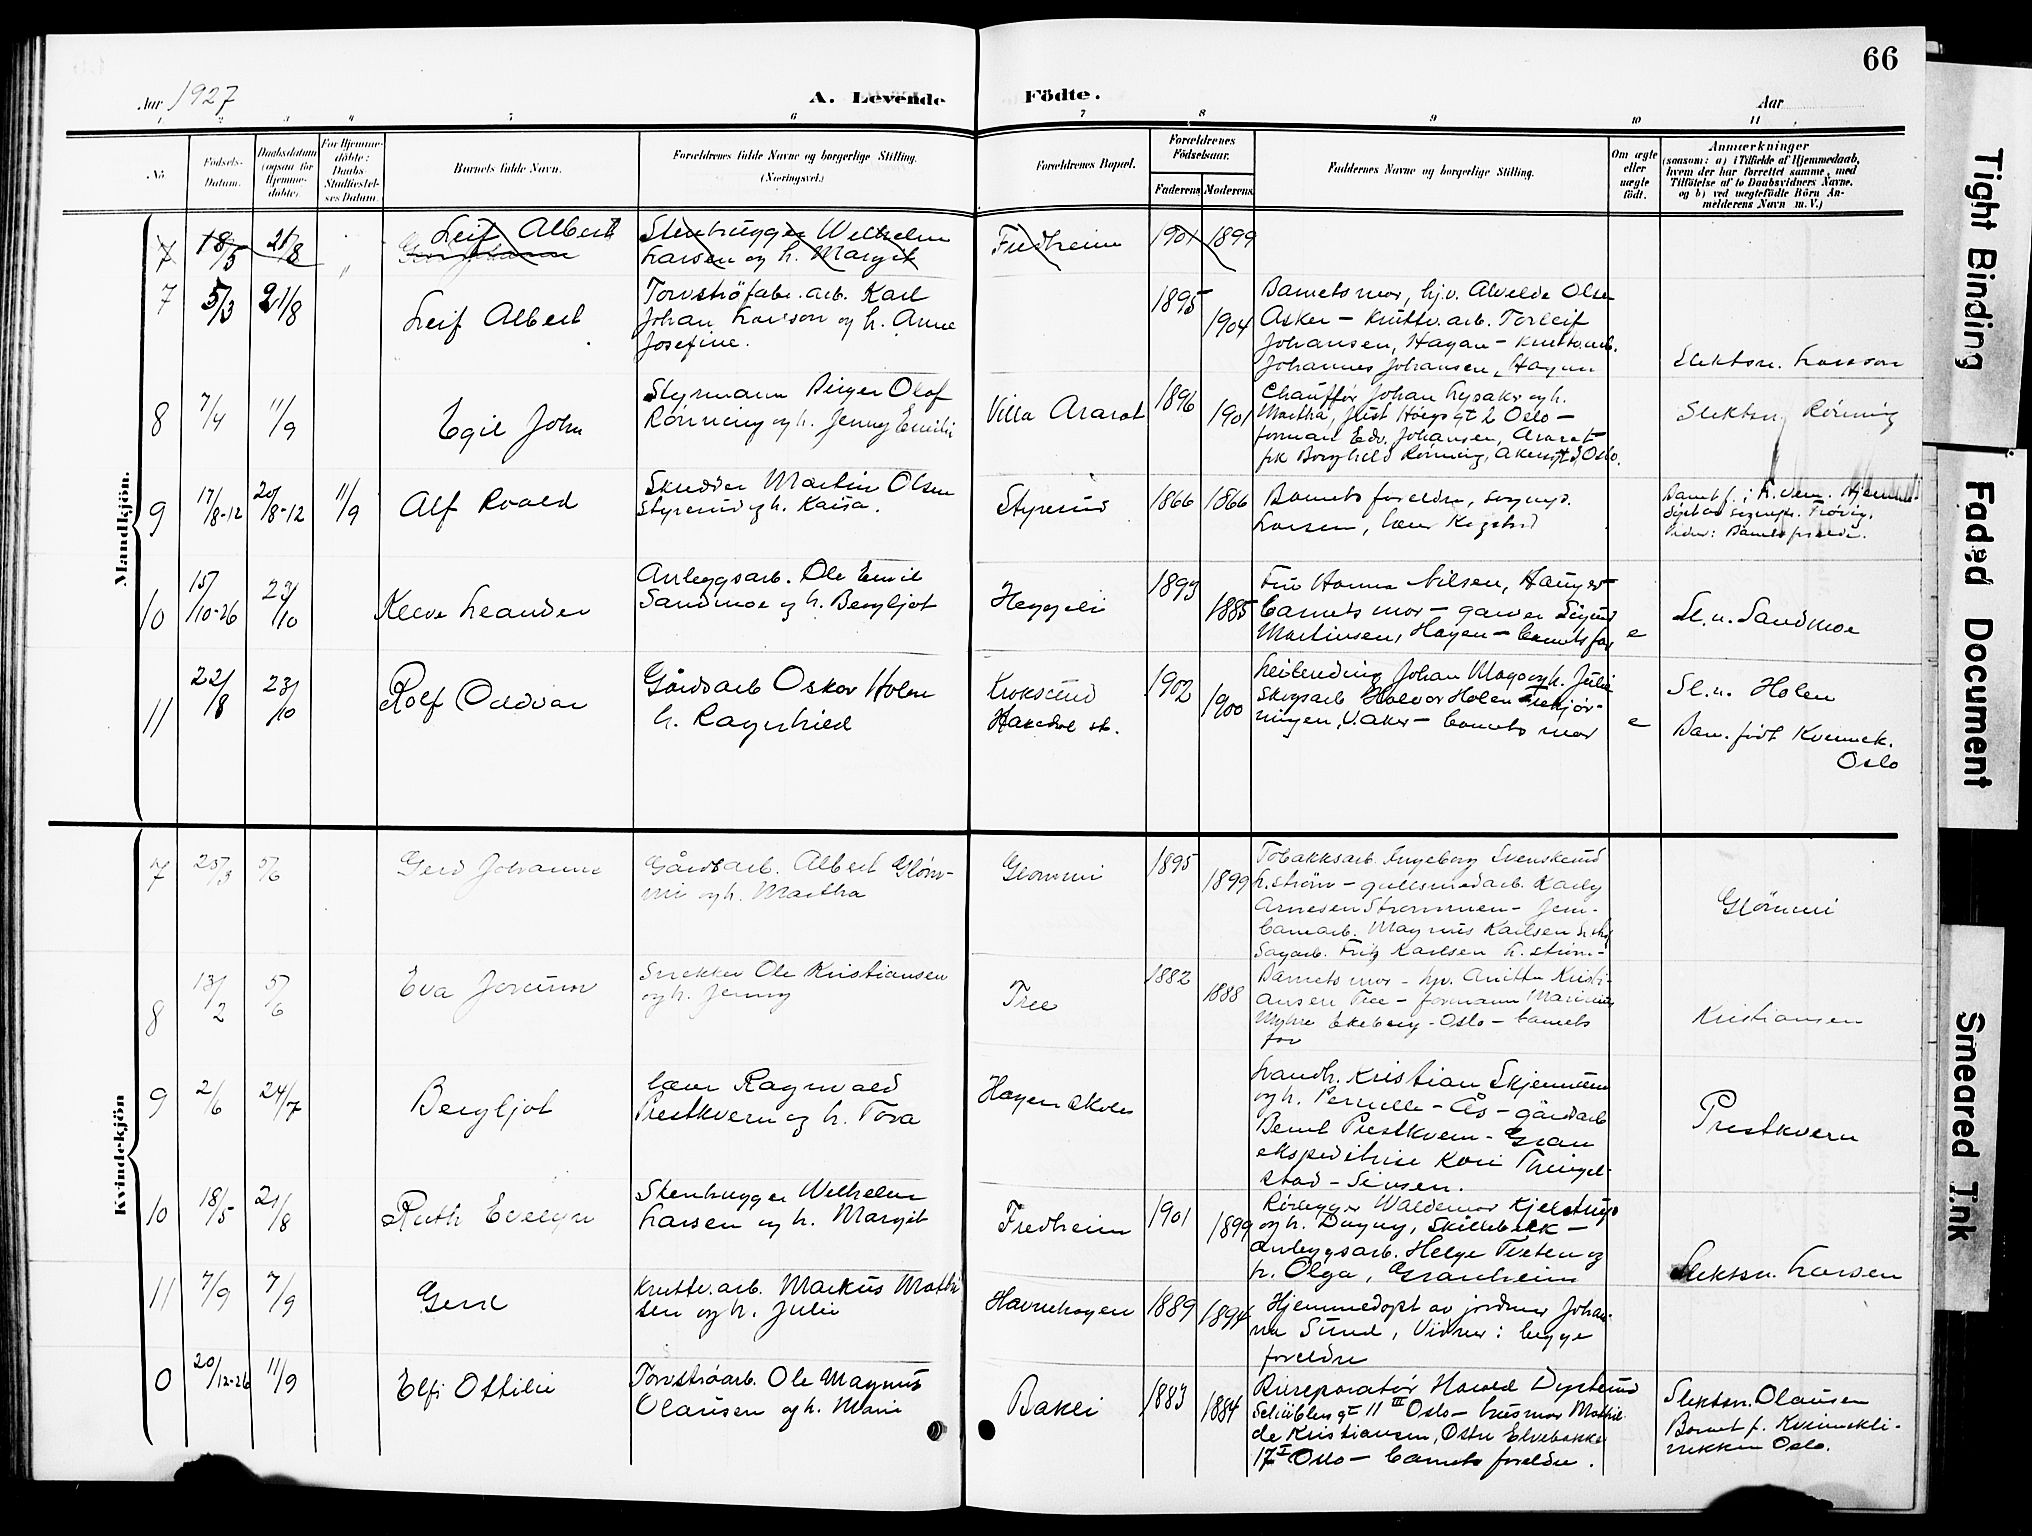 66
Aar 1927
A. Levende Födte.
Aar
1 2 3 4 5 6 7 8 9 10 11
No
Födsels-
Datum.
Daabsdatum
(ogsaa for
Hjemme-
döbte).
For Hjemme-
döbte:
Daabs-
Stadfæstel-
ses Datum.
Barnets fulde Navn.
Forældrenes fulde Navne og borgerlige Stilling.
(Næringsvei.)
Forældrenes Bopæl.
Forældrenes
Födselsaar.
Faderens Moderens
Faddernes Navne og borgerlige Stilling.
Om ægte
eller
uægte
födt.
Anmærkninger
(saasom: a) i Tilfælde af Hjemmedaab,
hvem der har forrettet samme, med
Tilföielse af to Daabsvidners Navne,
og b) ved uægtefödte Börn An-
melderens Navn m. V.)
Mandkjön.
7 18/5 21/8
Leif Albert
Stenhugger Wilhelm
Larsen og h. Margit
Fredheim
1901 1899
7 5/3 21/8
Leif Albert
Torvströfabr. arb. Karl
Johan Larsson og h. Anna
Josefine.
1895
1904
Barnets mor, hj.v. Alvilde Olsen
Asker - Kruttv. arb. Torleif
Johansen, Hagan - Kruttv. arb.
Johannes Johansen, Hagan
Slektsn. Larsson
8 7/4 11/9
Egil John
Styrmann Birger Olof
Rönning og h. Jenny Emilie
Villa Ararat
1896
1901
Chauffør Johan Lysaker og h.
Martha, Just Høegs gt 2 Oslo -
forman Edv. Johansen, Ararat
frk Borghild Rönning, Akersgt Oslo.
Slektsn. Rönning
9 17/8-12 20/8-12 11/9
Alf Roald
Skredder Martin Olsen
Styrerud og h. Kaisa.
Styrerud
1866 1866
Barnets foreldre, sogneps.
Larsen, lærer
10 15/10-26 23/10
Leander
Anleggsarb. Ole Emil
Sandmoe og h. Bergljot
Heggeli
1893
1885
Fru Hanna Nilsen, Hauger
barnets mor - garver Sigurd
Martinsen, Hagen - barnets far
e
Sl. n. Sandmoe
11 22/8 23/10
Rolf Oddvar
Gårdsarb Oskar Holen
h. Ragnhild
Kroksund
Hakedal st.
1902
1900
Leilending Johan Mago og h. Julie
Skogsarb Halvor Holen
ningen, V. Aker - barnets mor
e
Sl. n. Holen
Barn. født Kvinnek.
Oslo
Kvindekjön
7 25/3 5/6
Gerd Johanne
Gårdsarb. Albert Glöm-
mi og h. Martha
Glommi
1895
1899
Tobakksarb. Ingeborg Svenskerud
L.ström - gullsmedarb. Karly
Arnesen Strømmen - Jern-
banearb. Magnus Karlsen
Sagarb. Fritz Karlsen L. ström -
Glömmi
8 13/2 5/6
Eva Jorunn
Snekker Ole Kristiansen
og h. Jenny
Tree
1882
1888
Barnets mor - hjv. Anitta Kristi-
ansen Tree - formann Marinius
Myhre Ekeberg - Oslo - barnets
far
Kristiansen
9 2/6 24/7
Bergljot
Lærer Ragnvald
Prestkvern og h. Tora
Hagen skole
Landh. Kristian Skjennum
og h. Pernille - Ås - gårdarb
Bernt Prestkvern - Gran
ekspeditrise Kari Thingel-
stad - Sinsen.
Prestkvern
10 18/5 21/8
Ruth Evelyn
Stenhugger Wilhelm
Larsen og h. Margit
Fredheim
1901
1899
Rørlegger Waldemar Kjelstrup
og h. Dagny, Skillebekk -
anleggsarb. Helge Tveten og
h. Olga, Granheim
Slektsn. Larsen
11 7/9 7/9
Gerd
Kruttv. arb. Markus Mathi
sen og h. Julie
Havnehagen
1889
1894
Hjemmedøpt av jordmor Johan-
na Sund, Vidner: begge
foreldre
0 20/12-26 11/9
Elfi Ottilie
Torvströarb. Ole Magnus
Olausen og h. Marie
Bakli
1883
1884
Bilreparatør Harald Dysterud
Schüblers gt 11 III Oslo - husmor Mathil-
de Kristiansen, Østre Elvebakke
17 I Oslo - barnets foreldre.
Slektsn. Olausen
Barnet f. Kvinnekli-
nikken Oslo.
Tight Binding
Faded Document
Smeared Ink